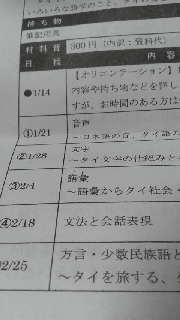 いろいろな
持ち物
筆記用具
材料費 300円（内訳：資料代
日程 内容
【オリエンテーション】
●1/14 内容や持ち物などを詳し
すが、お時間のある方は
音声
①1/21 ～日本語の音、タイ語
文字
②1/28 ～タイ文字の仕組みと
語彙
③2/4 ～語彙からタイ社会・
④2/18 文法と会話表現
方言・少数民族語と
2/25 ～タイを旅する、